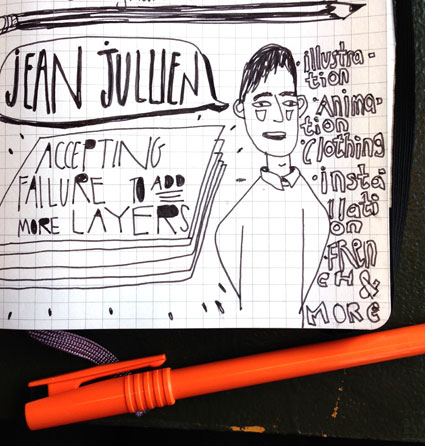 JEAN JULLIEN
ACCEPTING
FAILURE TO ADD
MORE LAYERS
·illustra-
tion
·Anima-
tion
·Clothing
·insta
llati
on
·FREN
CH &
MORE